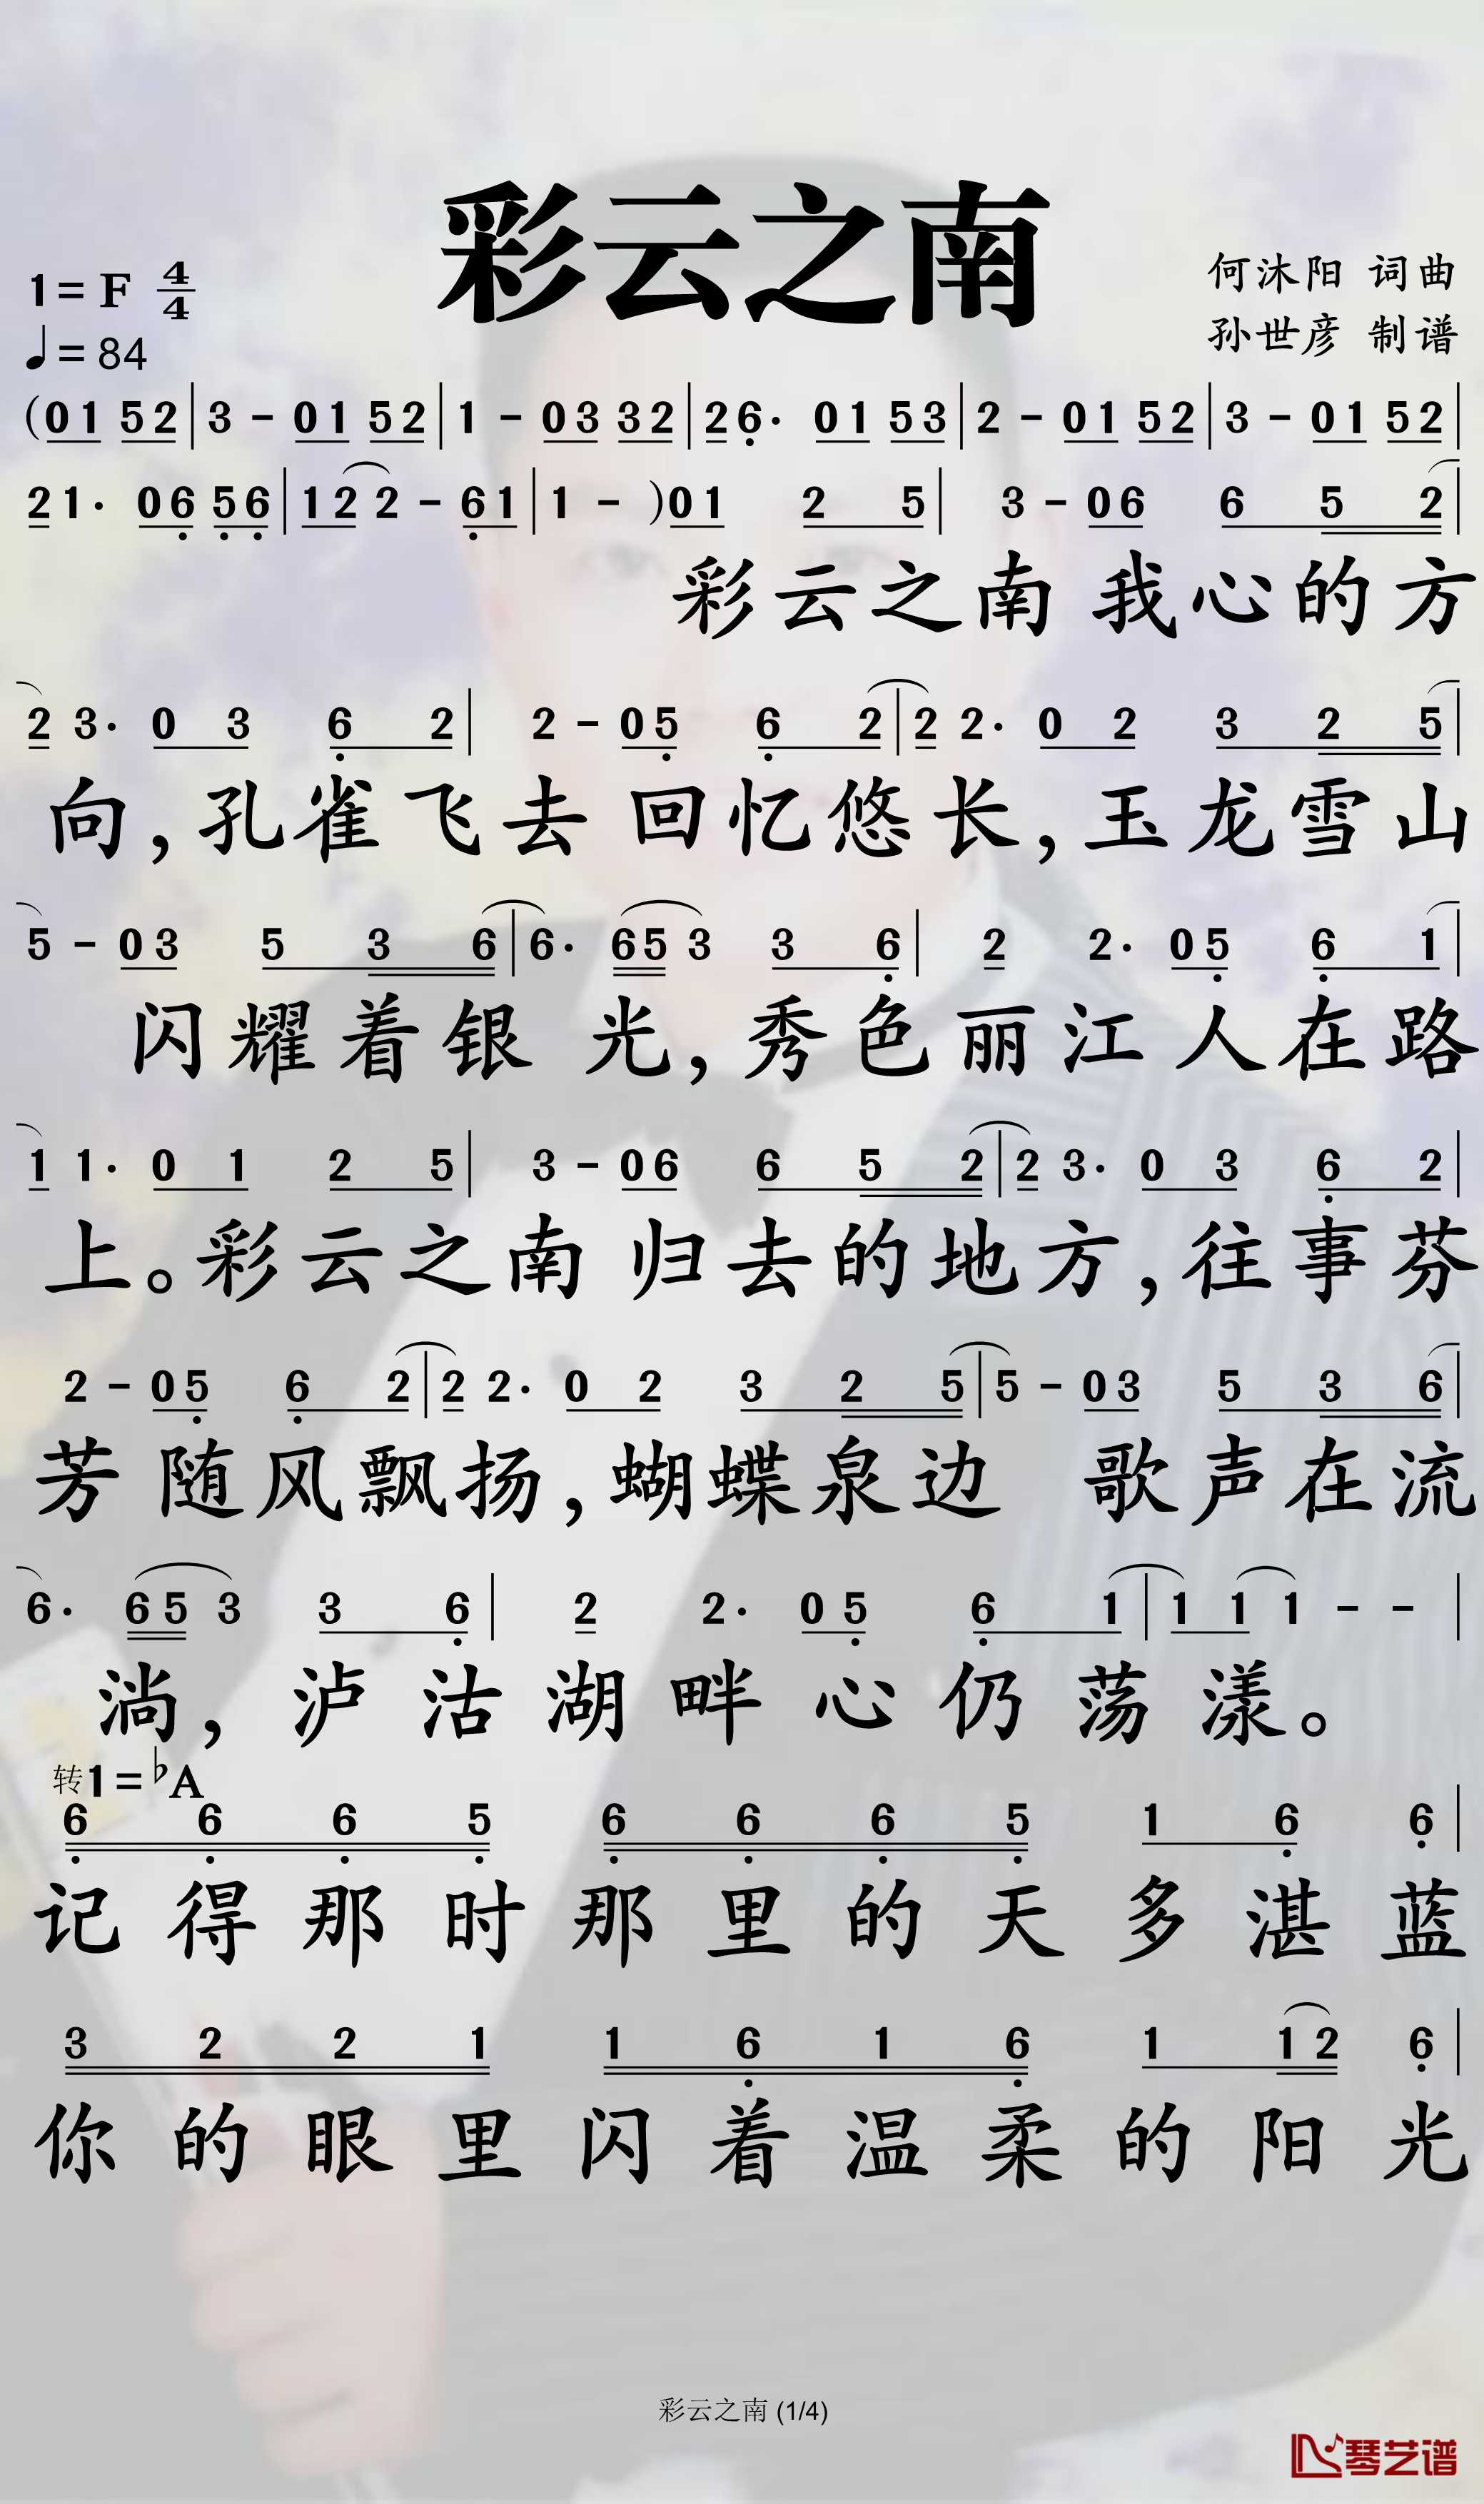 彩云之南
1=F 4/4
♩=84
何沐阳 词曲
孙世彦 制谱
(01 52|3 - 01 52|1 - 03 32|26· 01 53|2 - 01 52|3 - 01 52|
21· 06 56|12 2 - 61|1 - )01 2 5|3 - 06 6 5 2|
彩云之南 我心的方
2 3· 0 3 6 2|2 - 05 6 2|2 2· 0 2 3 2 5|
向,孔雀飞去 回忆悠长,玉龙雪山
5 - 03 5 3 6|6· 65 3 3 6|2 2· 05 6 1|
闪耀着银 光,秀色丽江人在路
1 1· 0 1 2 5|3 - 06 6 5 2|2 3· 0 3 6 2|
上。彩云之南 归去的地方,往事芬
2 - 05 6 2|2 2· 0 2 3 2 5|5 - 03 5 3 6|
芳 随风飘扬,蝴蝶泉边 歌声在流
6· 65 3 3 6|2 2· 05 6 1|1 1 1 - -|
淌,泸沽湖畔心仍荡漾。
转1=♭A
6 6 6 5 6 6 6 5 1 6 6|
记得那时那里的天多湛蓝
3 2 2 1 1 6 1 6 1 12 6|
你的眼里闪着温柔的阳光
彩云之南 (1/4)
琴艺谱